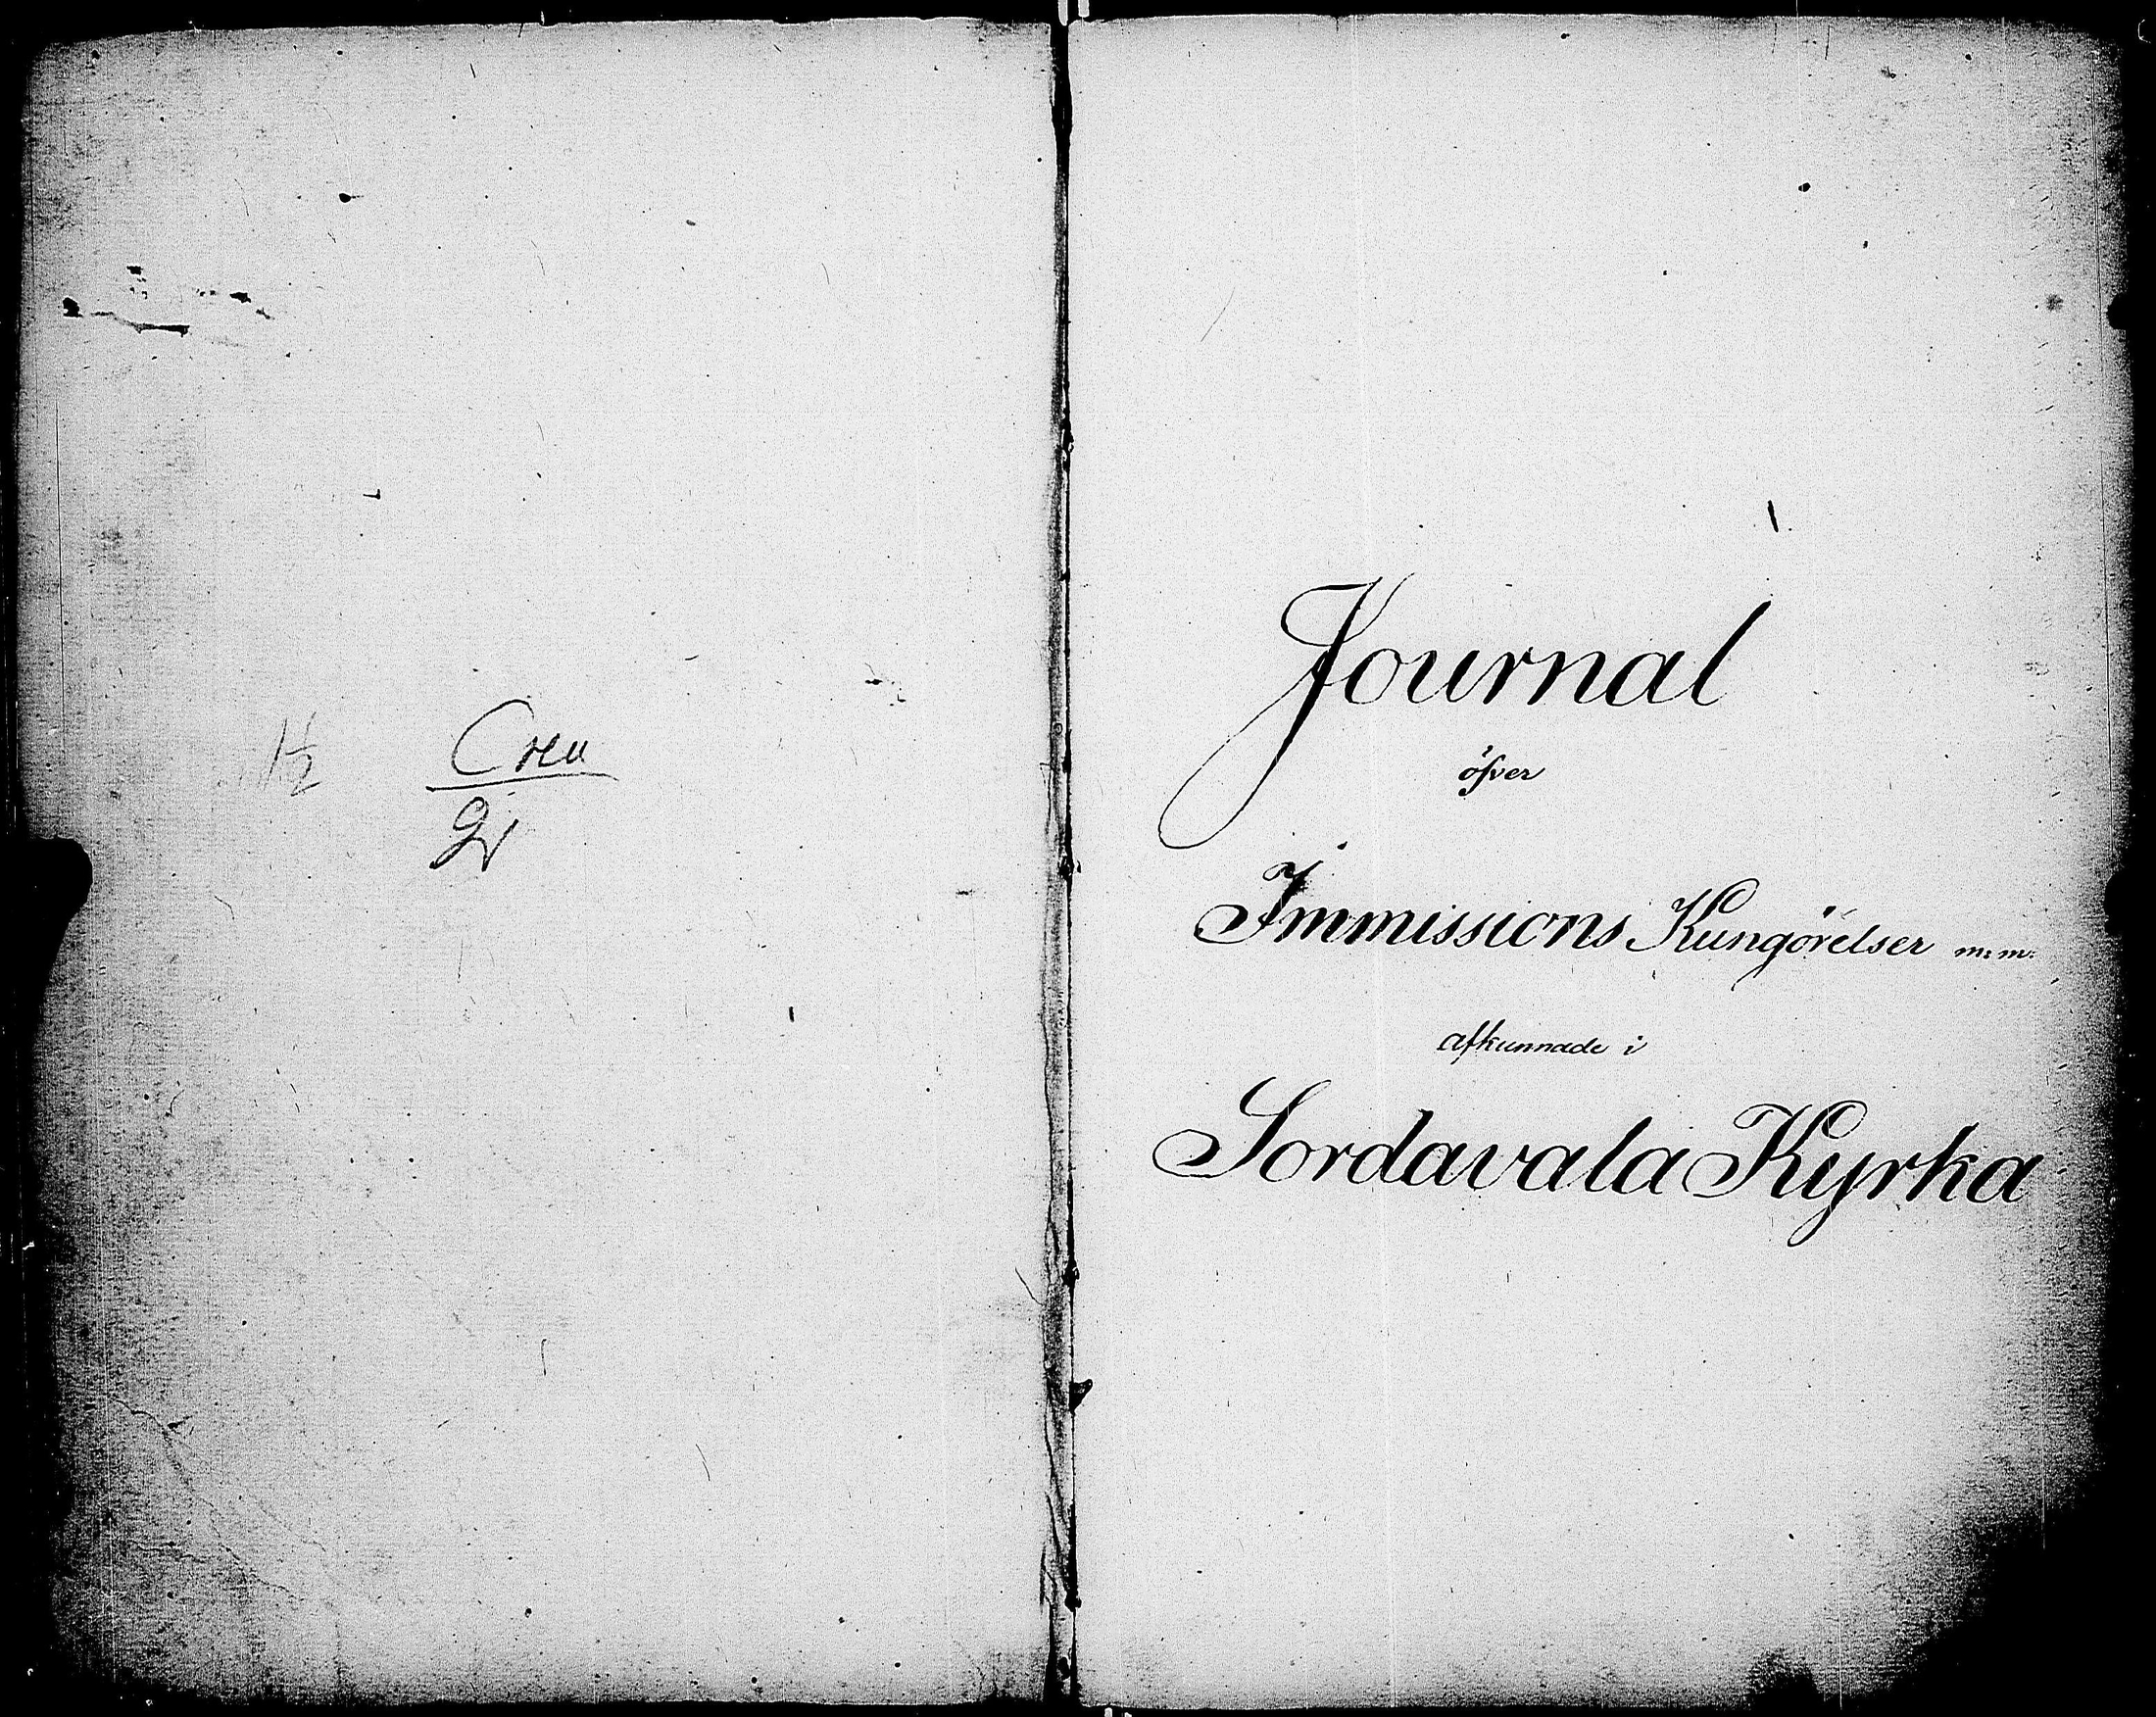 1½
Journal
öfver
Immissions Kungörelser m: m:
afkunnade i
Sordavala Kyrka